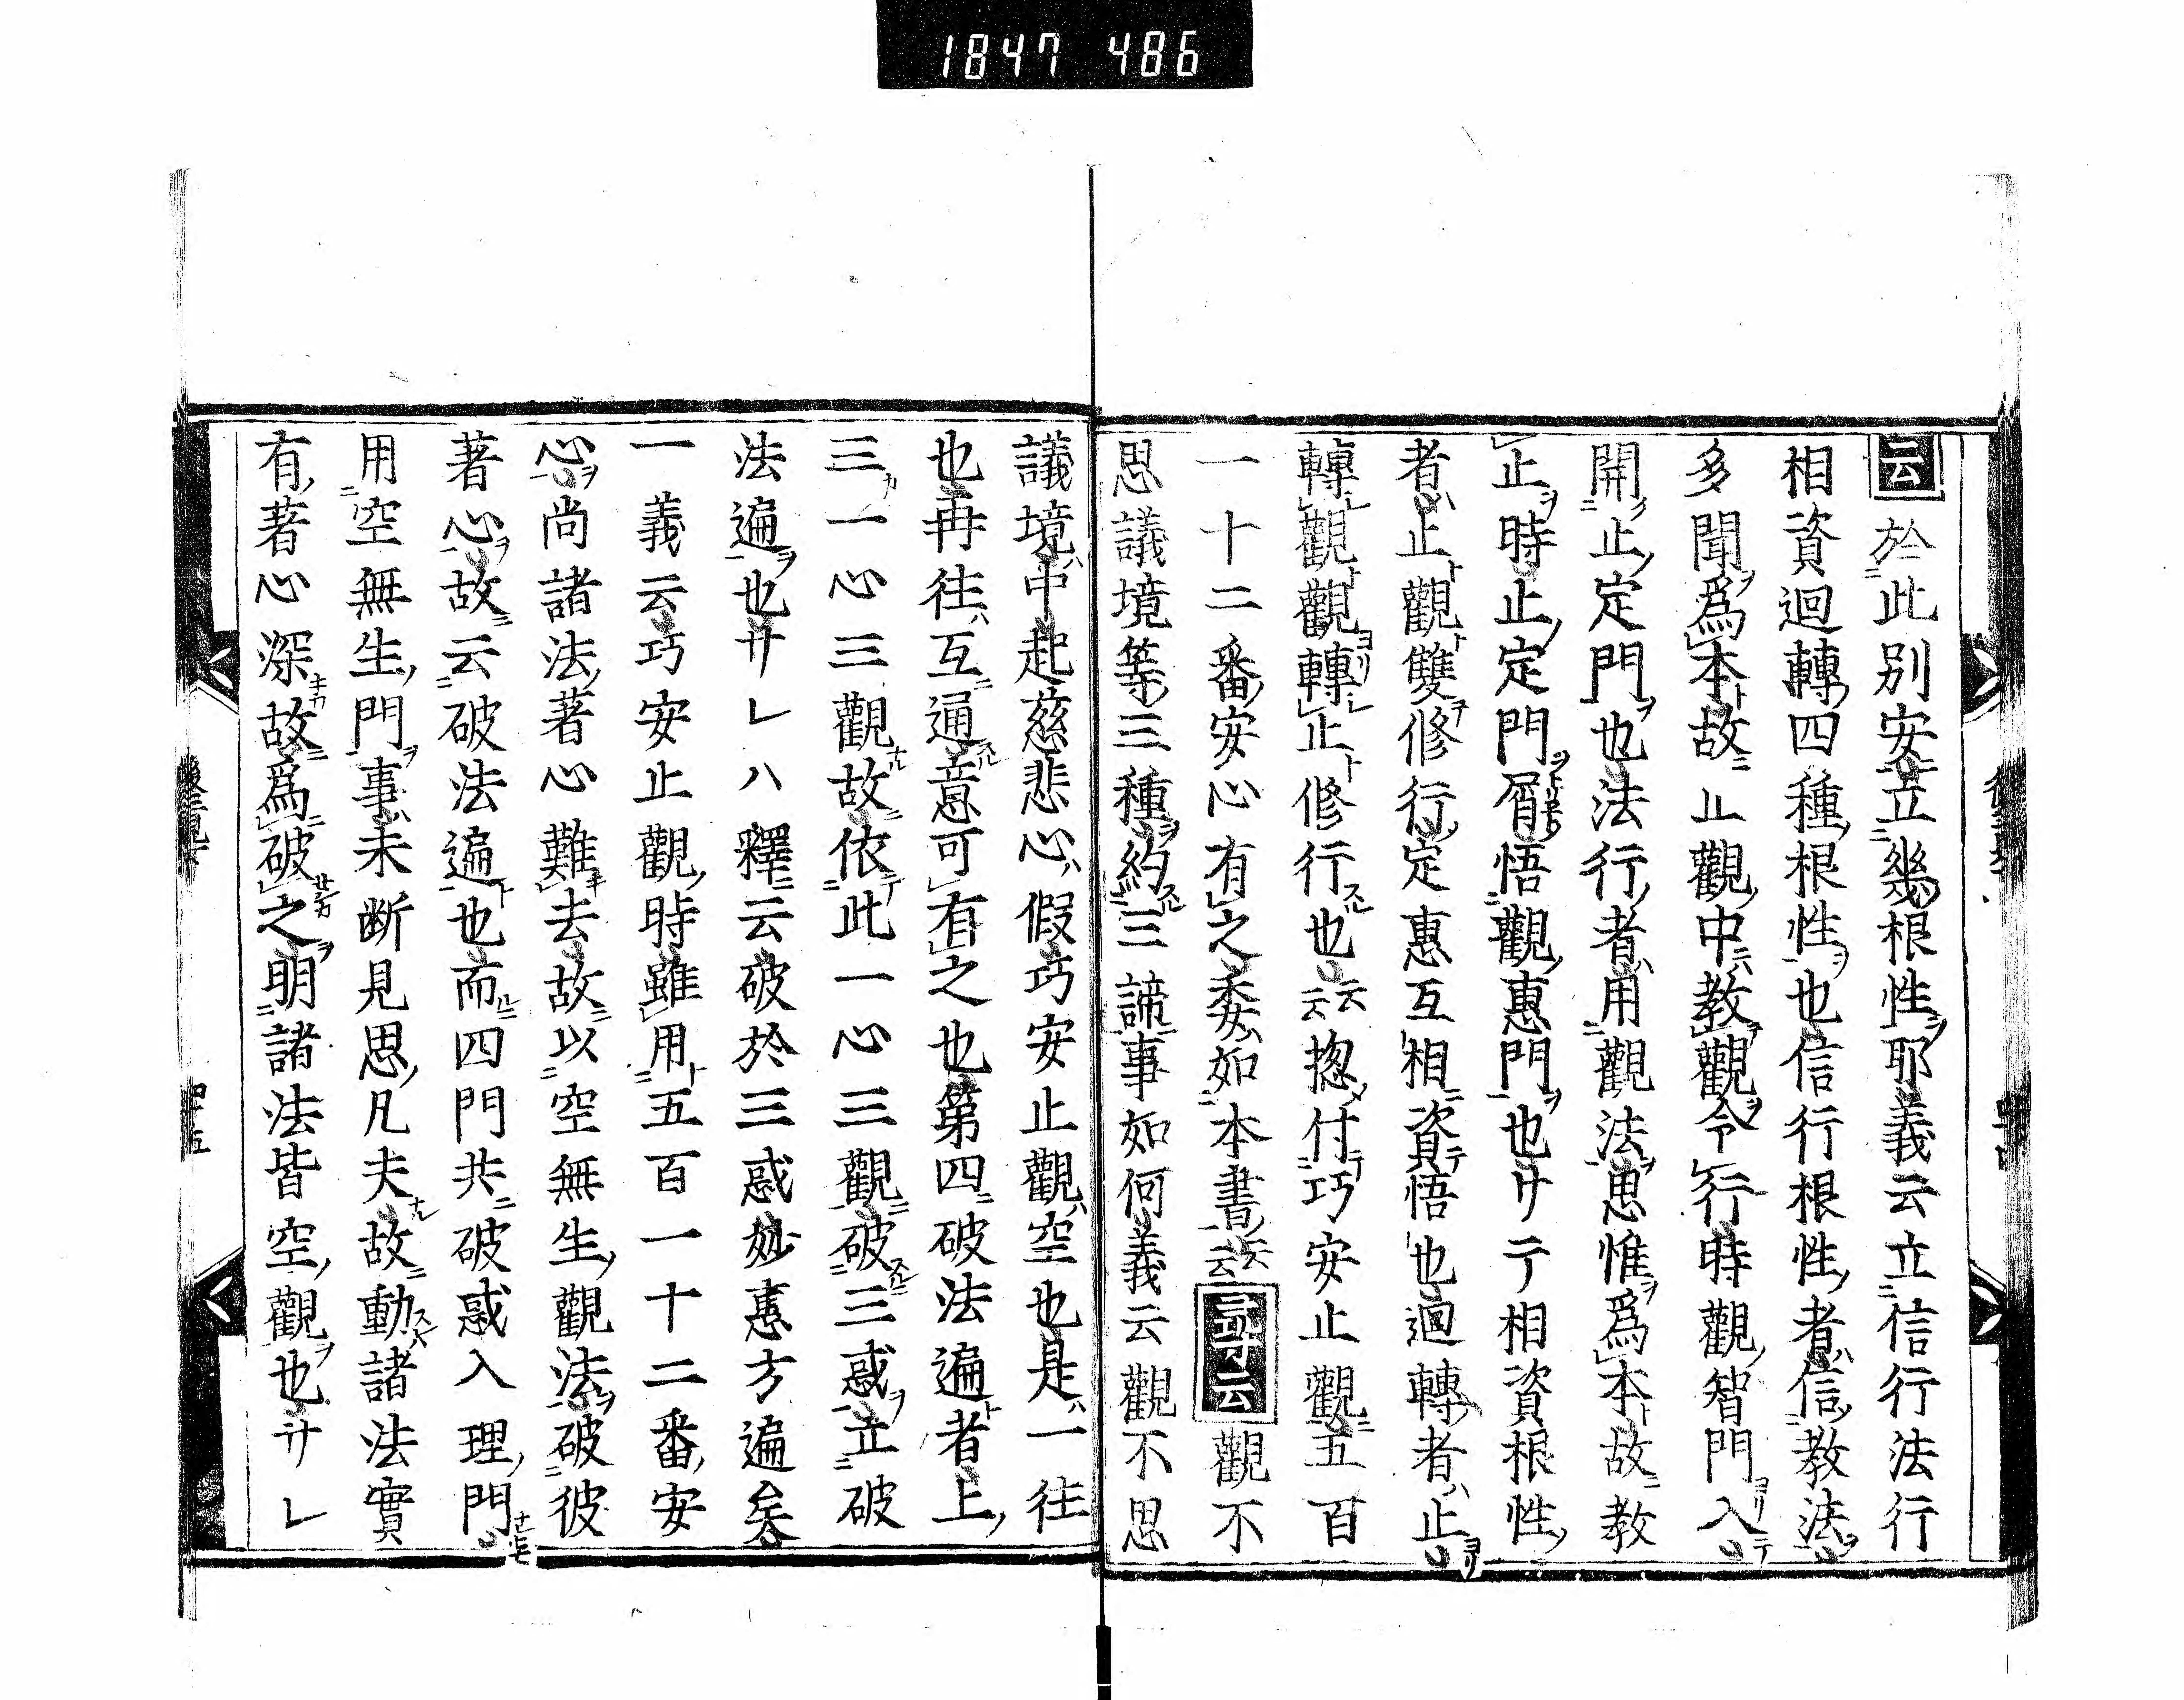 1847 486
云於此別安立幾根性耶義云立信行法行
相資迴轉四種根性也信行根性者信教法
多聞爲本故止觀中教觀令行時觀智門入
開止定門也法行者用觀法思惟爲本故教
止時止定門屑悟觀惠門也サテ相資根性
者止觀雙修行定惠互相資悟也迴轉者止
轉觀觀轉止修行也云云揔付巧安止觀五百
一十二番安心有之委如本書云云尋云觀不
思議境等三種約三諦事如何義云觀不思
議境中起慈悲心假巧安止觀空也是一往
也再往互通意可有之也第四破法遍者上
三一心三觀故依此一心三觀破三惑立破
法遍也サレハ釋云破於三惑妙惠方遍矣
一義云巧安止觀時雖用五百一十二番安
心尚諸法著心難去故以空無生觀法破彼
著心故云破法遍也而四門共破惑入理門
用空無生門事未断見思凡夫故動諸法實
有著心深故爲破之明諸法皆空觀也サレ